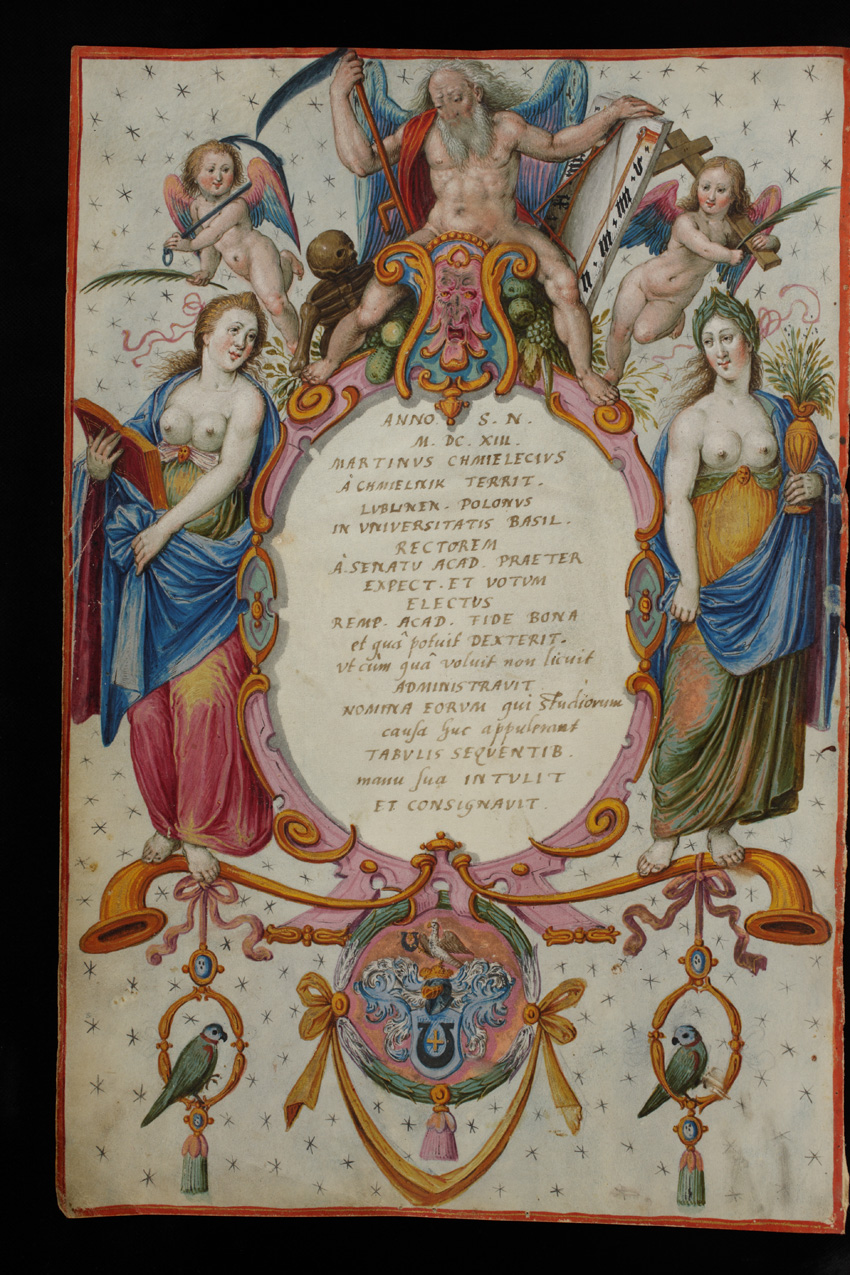 II · III · IIII · V
ANNO. S. N.
M. DC. XIII.
MARTINVS CHMIELECIVS
À CHMIELNIK TERRIT.
LVBLINEN. POLONVS
IN VNIVERSITATIS BASIL.
RECTOREM
À SENATV ACAD. PRAETER
EXPECT. ET VOTVM
ELECTVS
REMP. ACAD. FIDE BONA
et quâ potuit DEXTERIT.
vt cùm quâ voluit non licuit
ADMINISTRAVIT
NOMINA EORVM qui studiorum
causa huc appulerant
TABVLIS SEQVENTIB.
manu sua INTVLIT
ET CONSIGNAVIT.